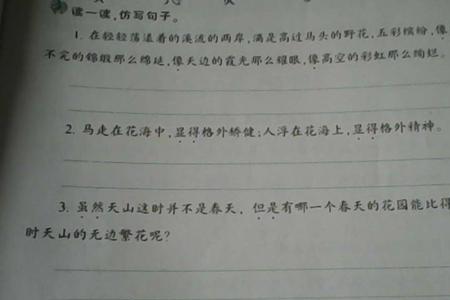 读一读,仿写句子。
1. 在轻轻荡漾着的溪流的两岸,满是高过马头的野花,五彩缤纷,像
不完的锦缎那么绵延,像天边的霞光那么耀眼,像高空的彩虹那么绚烂。
2. 马走在花海中,显得格外矫健;人浮在花海上,显得格外精神。
3. 虽然天山这时并不是春天,但是有哪一个春天的花园能比得
时天山的无边繁花呢?